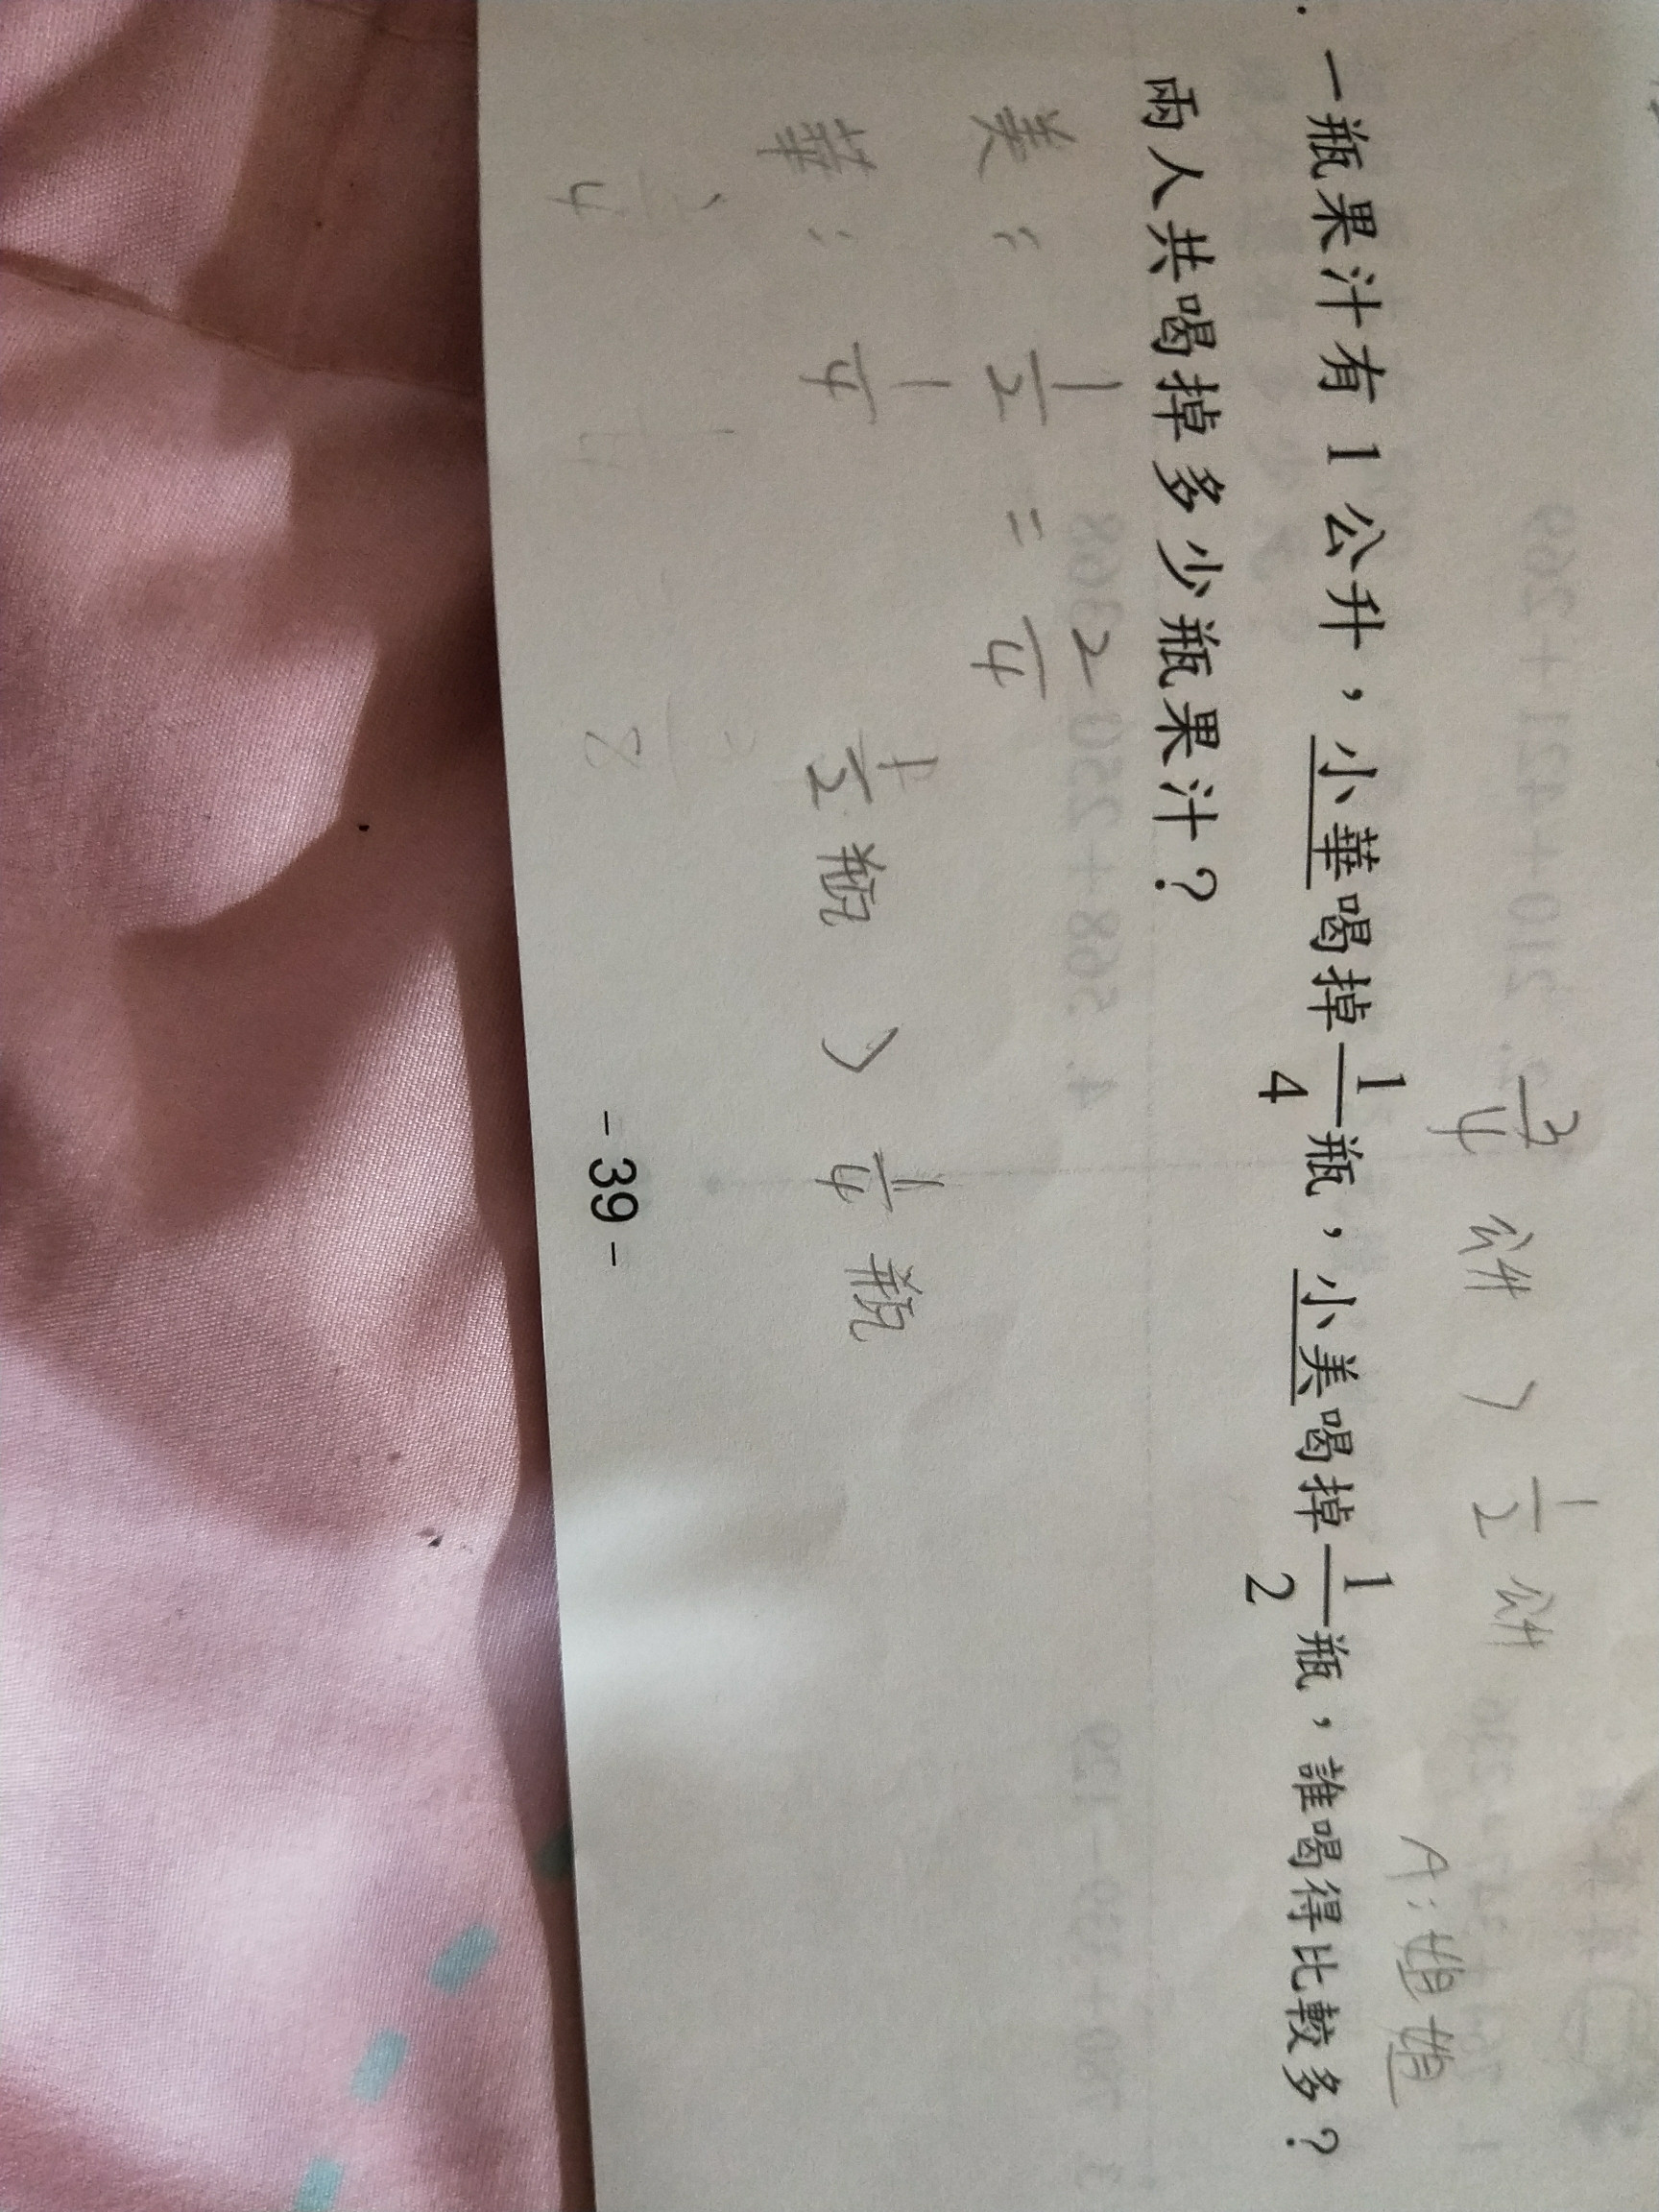 3/4 公升 > 1/2 公升
A:姐姐
一瓶果汁有1公升，小華喝掉1/4瓶，小美喝掉1/2瓶，誰喝得比較多？
兩人共喝掉多少瓶果汁？
美： 1/2 = 2/4
華： 1/4
1/2瓶 > 1/4瓶
- 39 -